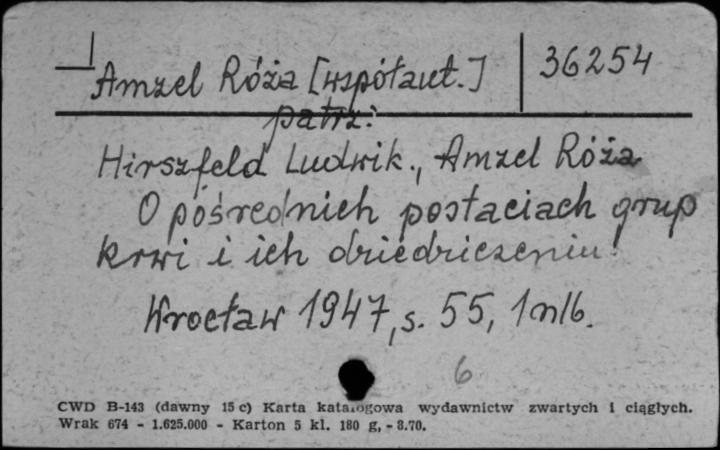 Amzel Róża [współaut.] 36254
patrz:
Hirszfeld Ludwik., Amzel Róża
O pośrednich postaciach grup
krwi i ich dziedziczeniu!
Wrocław 1947, s. 55, 1 nlb.
6
CWD B-143 (dawny 15 c) Karta katalogowa wydawnictw zwartych i ciągłych.
Wrak 674 - 1.625.000 - Karton 5 kl. 180 g, - 8.70.